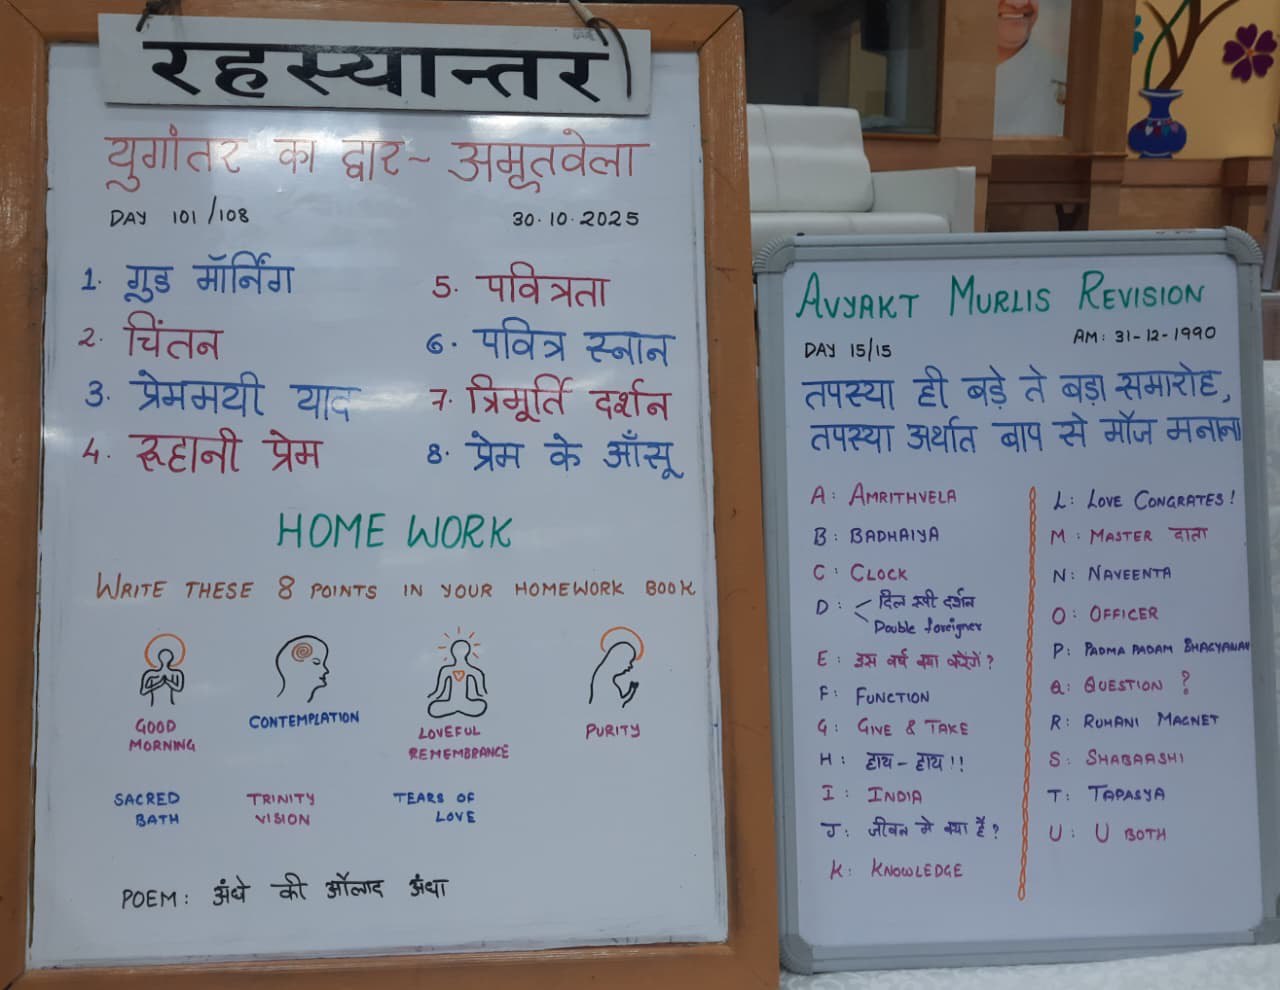 रहस्यान्तर
युगांतर का द्वार - अमृतवेला
DAY 101/108
30.10.2025
1. गूड मॉर्निंग
2. चिंतन
3. प्रेममयी याद
4. रूहानी प्रेम
5. पवित्रता
6. पवित्र स्नान
7. त्रिमूर्ति दर्शन
8. प्रेम के आँसू
HOME WORK
WRITE THESE 8 POINTS IN YOUR HOMEWORK BOOK
GOOD
MORNING
CONTEMPLATION
LOVEFUL
REMEMBRANCE
PURITY
SACRED
BATH
TRINITY
VISION
TEARS OF
LOVE
POEM: अंधे की औलाद अंधा
AVYAKT MURLIS REVISION
AM: 31-12-1990
DAY 15/15
तपस्या ही बड़े ते बड़ा समारोह,
तपस्या अर्थात बाप से मौज मनाना
A: AMRITHVELA
B: BADHAIYA
C: CLOCK
D: दिल रूपी दर्शन
Double foreigner
E: उस वर्ष क्या करेंगे?
F: FUNCTION
G: GIVE & TAKE
H: हाय - हाय!!
I: INDIA
J: जीवन मे क्या है?
K: KNOWLEDGE
L: LOVE CONGRATES!
M: MASTER दाता
N: NAVEENTA
O: OFFICER
P: PADMA PADAM BHAGYANAV
Q: QUESTION ?
R: RUHANI MAGNET
S: SHABAASHI
T: TAPASYA
U: U BOTH